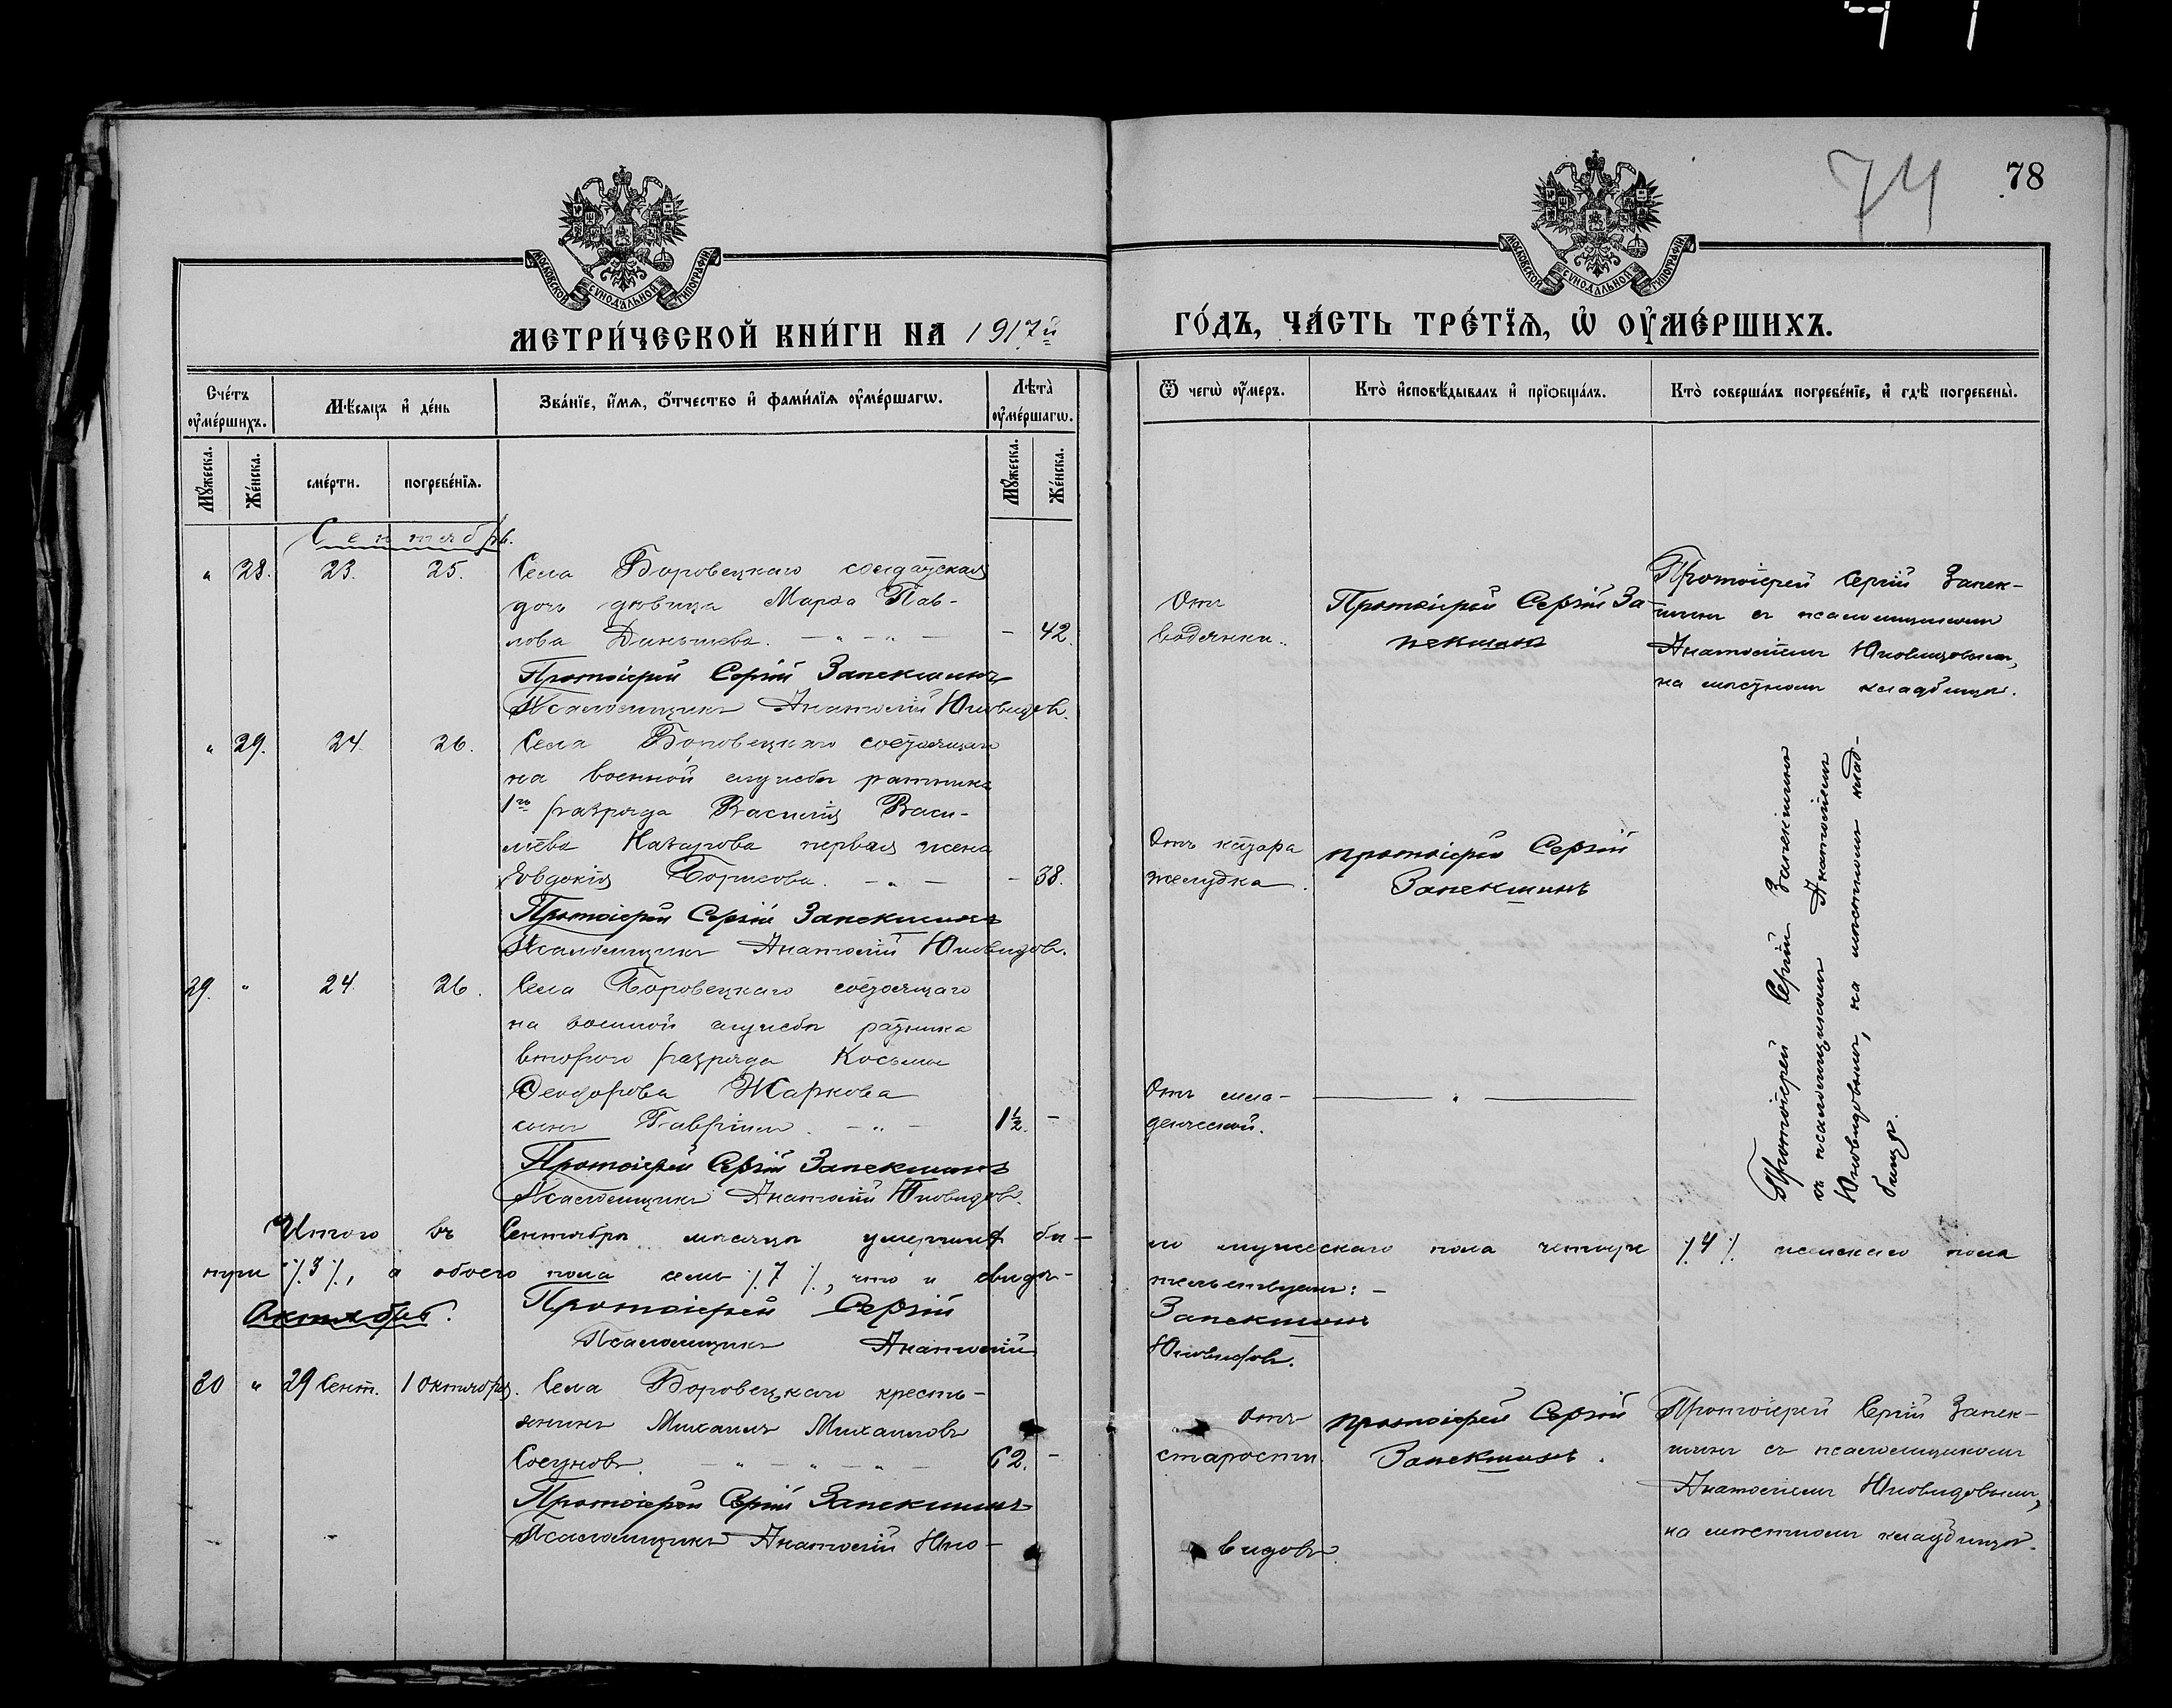 78
74
МОСКОВСКОЙ СУНОДАЛЬНОЙ ТИПОГРАФІИ
МОСКОВСКОЙ СУНОДАЛЬНОЙ ТИПОГРАФІИ
МЕТРИ́ЧЕСКОЙ КНИ́ГИ НА 1917й
ГО́ДЪ, ЧА́СТЬ ТРЕ́ТЇѦ, Ѡ҆ ОУ҆МЕ́РШИХЪ.
Сче́тъ оу҆ме́ршихъ.
Мѣ́сѧцъ и҆ де́нь
Зва́нїе, и҆́мѧ, ѻ҆́тчество и҆ фами́лїѧ оу҆ме́ршагѡ.
Лѣта̀ оу҆ме́ршагѡ.
Ѿ чегѡ̀ оу҆́меръ.
Кто̀ и҆сповѣ́дывалъ и҆ прїѡбща́лъ.
Кто̀ соверша́лъ погребе́нїе, и҆ гдѣ̀ погребены̀.
Мꙋ́жеска.
Же́нска.
сме́рти.
погребе́нїѧ.
Мꙋ́жеска.
Же́нска.
Сентябрь.
" 28. 23. 25. Села Боровецкаго солдатская
дочь дѣвица Марѳа Пав-
лова Даньшева. — " — " — — 42.
Протоіерей Сергій Запекшинъ
Псаломщикъ Анатолій Юловидовъ.
Отъ
водянки.
Протоіерей Сергій За-
пекшинъ
Протоіерей Сергій Запек-
шинъ съ псаломщикомъ
Анатоліемъ Юловидовымъ,
на мѣстномъ кладбищѣ.
" 29. 24. 26. Села Боровецкаго состоящаго
на военной службѣ ратника
1го разряда Василія Васи-
льева Назарова первая жена
Евдокія Борисова. — " — — 38.
Протоіерей Сергій Запекшинъ
Псаломщикъ Анатолій Юловидовъ.
Отъ катара
желудка.
протоіерей Сергій
Запекшинъ
Протоіерей Сергій Запекшинъ
съ псаломщикомъ Анатоліемъ
Юловидовымъ, на мѣстномъ клад-
бищѣ.
29. " 24. 26. Села Боровецкаго состоящаго
на военной службѣ ратника
второго разряда Космы
Ѳеодорова Жаркова
сынъ Гавріилъ. — " — 1½. —
Протоіерей Сергій Запекшинъ
Псаломщикъ Анатолій Юловидовъ.
Отъ мла-
денческой.
— " —
Итого въ Сентябрѣ мѣсяцѣ умершихъ бы-
ло мужескаго пола четыре ./.4./. женскаго пола
три ./.3./., а обоего пола семь ./.7./., что и свидѣ-
тельствуемъ: —
Протоіерей Сергій
Запекшинъ
Псаломщикъ Анатолій
Юловидовъ.
Октябрь.
30 " 29 Сент. 1 Октября. Села Боровецкаго кресть-
янинъ Михаилъ Михаиловъ
Сосуновъ. — " — " — " — 62. —
Протоіерей Сергій Запекшинъ
Псаломщикъ Анатолій Юло-
видовъ.
Отъ
старости.
протоіерей Сергій
Запекшинъ.
Протоіерей Сергій Запек-
шинъ съ псаломщикомъ
Анатоліемъ Юловидовымъ,
на мѣстномъ кладбищѣ.